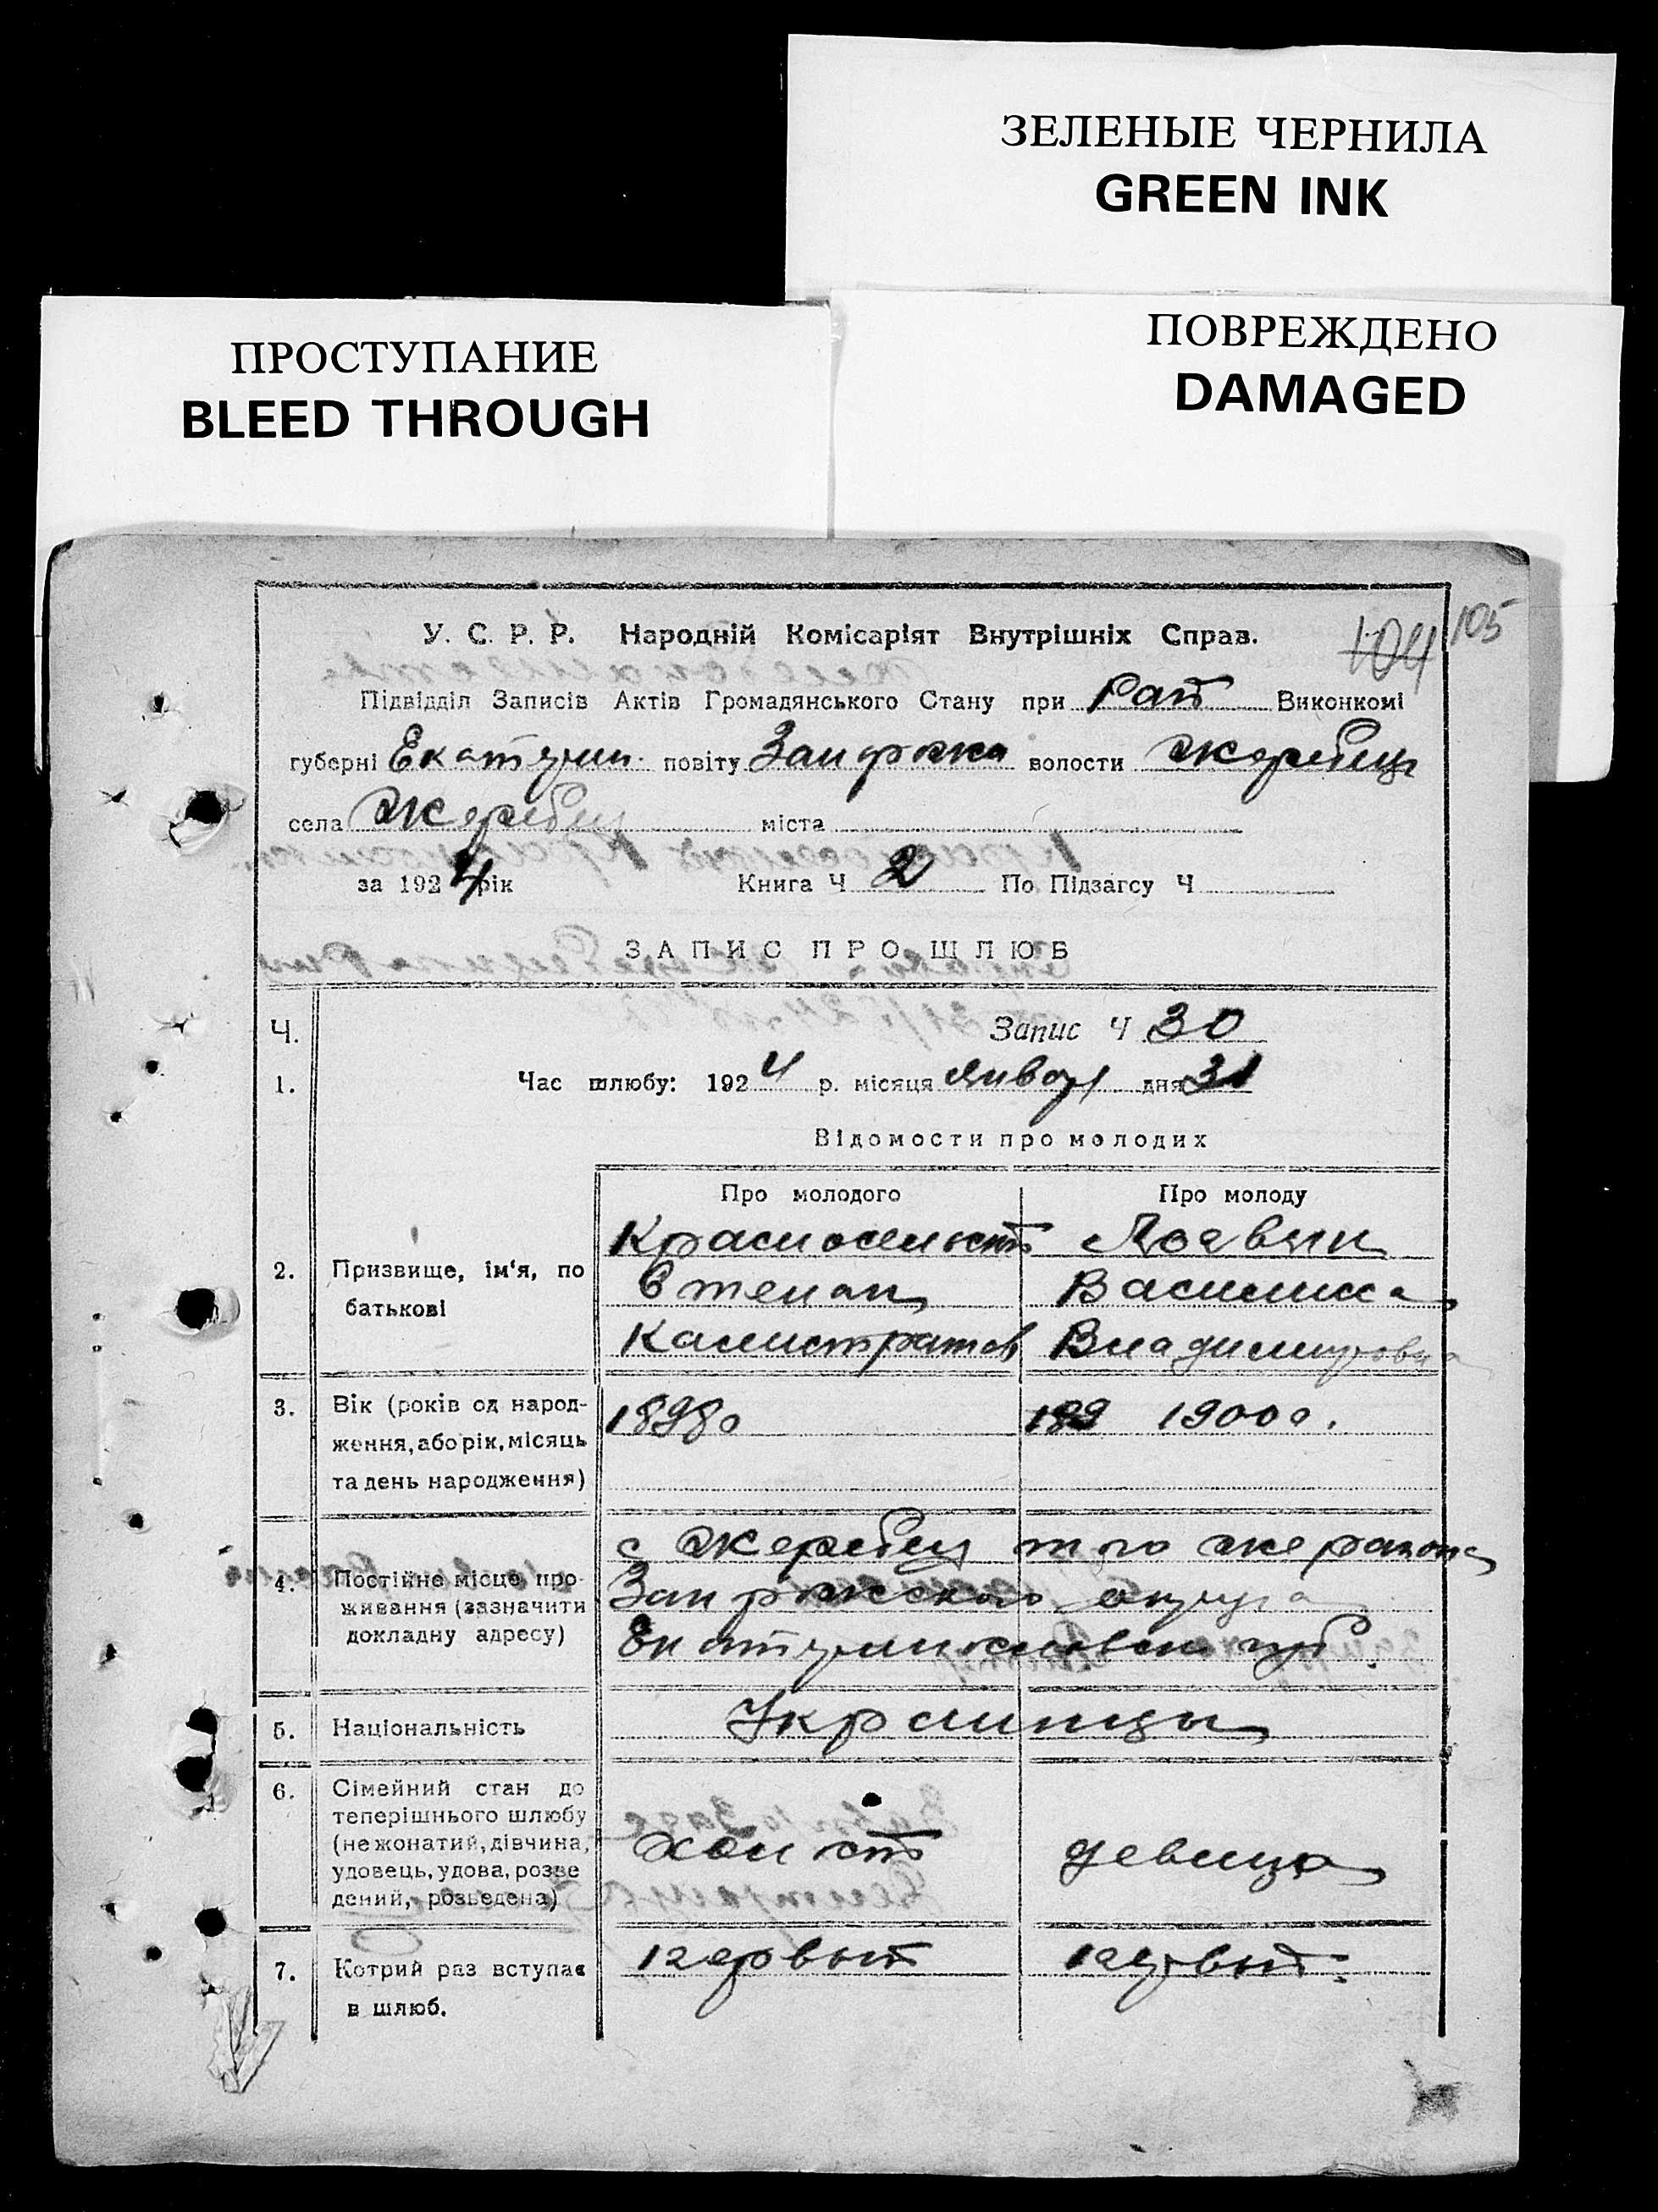 ЗЕЛЕНЫЕ ЧЕРНИЛА
GREEN INK
ПРОСТУПАНИЕ
BLEED THROUGH
ПОВРЕЖДЕНО
DAMAGED
104 105
У. С. Р. Р. Народній Комісаріят Внутрішніх Справ.
Підвідділ Записів Актів Громадянського Стану при Рай Виконкомі
губерні Екатерин. повіту Запорожс волости Жеребец
села Жеребец міста
за 1924 рік Книга Ч 2 По Підзагсу Ч
ЗАПИС ПРО ШЛЮБ
Ч. Запис Ч 30
1. Час шлюбу: 1924 р. місяця Январ дня 31
Відомости про молодих
Про молодого Про молоду
Красносельский
2. Призвище, ім'я, по батькові
Степан Василиса
Калистратов Владимировна
3. Вік (років од народ-
ження, або рік, місяць
та день народження)
1898 о 189 1900 о.
4. Постійне місце про-
живання (зазначити
докладну адресу)
с Жеребец того же района
Запорожского округа
Екатеринославской губ.
5. Національність Украинцы
6. Сімейний стан до
теперішнього шлюбу
(не жонатий, дівчина,
удовець, удова, розве
дений, розведена)
холост девица
7. Котрий раз вступає
в шлюб.
первый первый